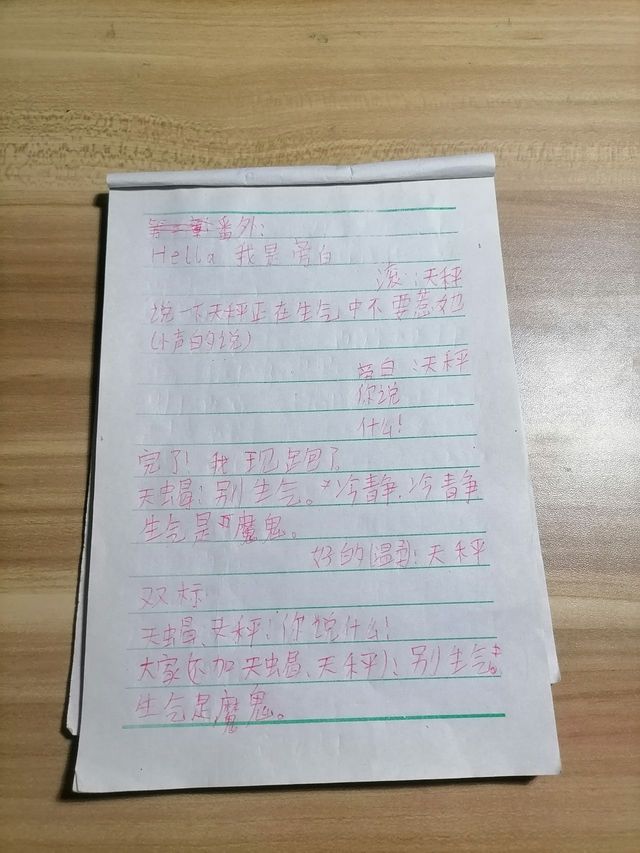 番外:
Hella 我是旁白
滚:天秤
说一下天秤正在生气中不要惹她
(小声的说)
旁白:天秤
你说
什么!
完了!我现跑了
天蝎:别生气。冷静.冷静
生气是魔鬼。
好的(温柔):天秤
双标
天蝎、天秤:你说什么!
大家(不加天蝎、天秤):别生气。
生气是魔鬼。